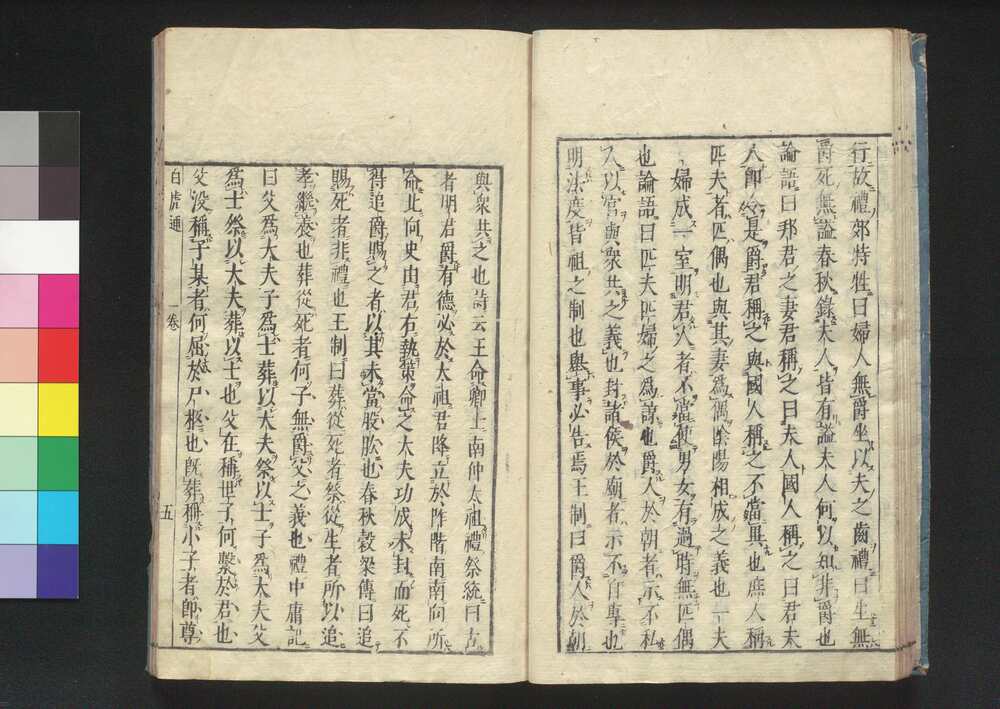 行故禮郊特牲曰婦人無爵坐以夫之齒禮曰生無
爵死無謚春秋錄夫人皆有謚夫人何以知非爵也
論語曰邦君之妻君稱之曰夫人國人稱之曰君夫
人即令是爵君稱之與國人稱之不當異也庶人稱
匹夫者匹偶也與其妻爲偶陰陽相成之義也一夫
一婦成一室明君人者不當使男女有過時無匹偶
也論語曰匹夫匹婦之爲諒也爵人於朝者示不私
人以官與衆共之義也封諸侯於廟者示不自專也
明法度皆祖之制也舉事必告焉王制曰爵人於朝
與衆共之也詩云王命卿士南仲太祖禮祭統曰古
者明君爵有德必於太祖君降立於阼階南南向所
命北向史由君右執策命之大夫功成未封而死不
得追爵賜之者以其未當股肱也春秋穀梁傳曰追
賜死者非禮也王制曰葬從死者祭從生者所以追
孝繼養也葬從死者何子無爵父之義也禮中庸記
曰父爲大夫子爲士葬以大夫祭以士子爲大夫父
爲士祭以大夫葬以士也父在稱世子何繫於君也
父没稱子某者何屈於尸柩也既葬稱小子者即尊
白虎通
一卷
五